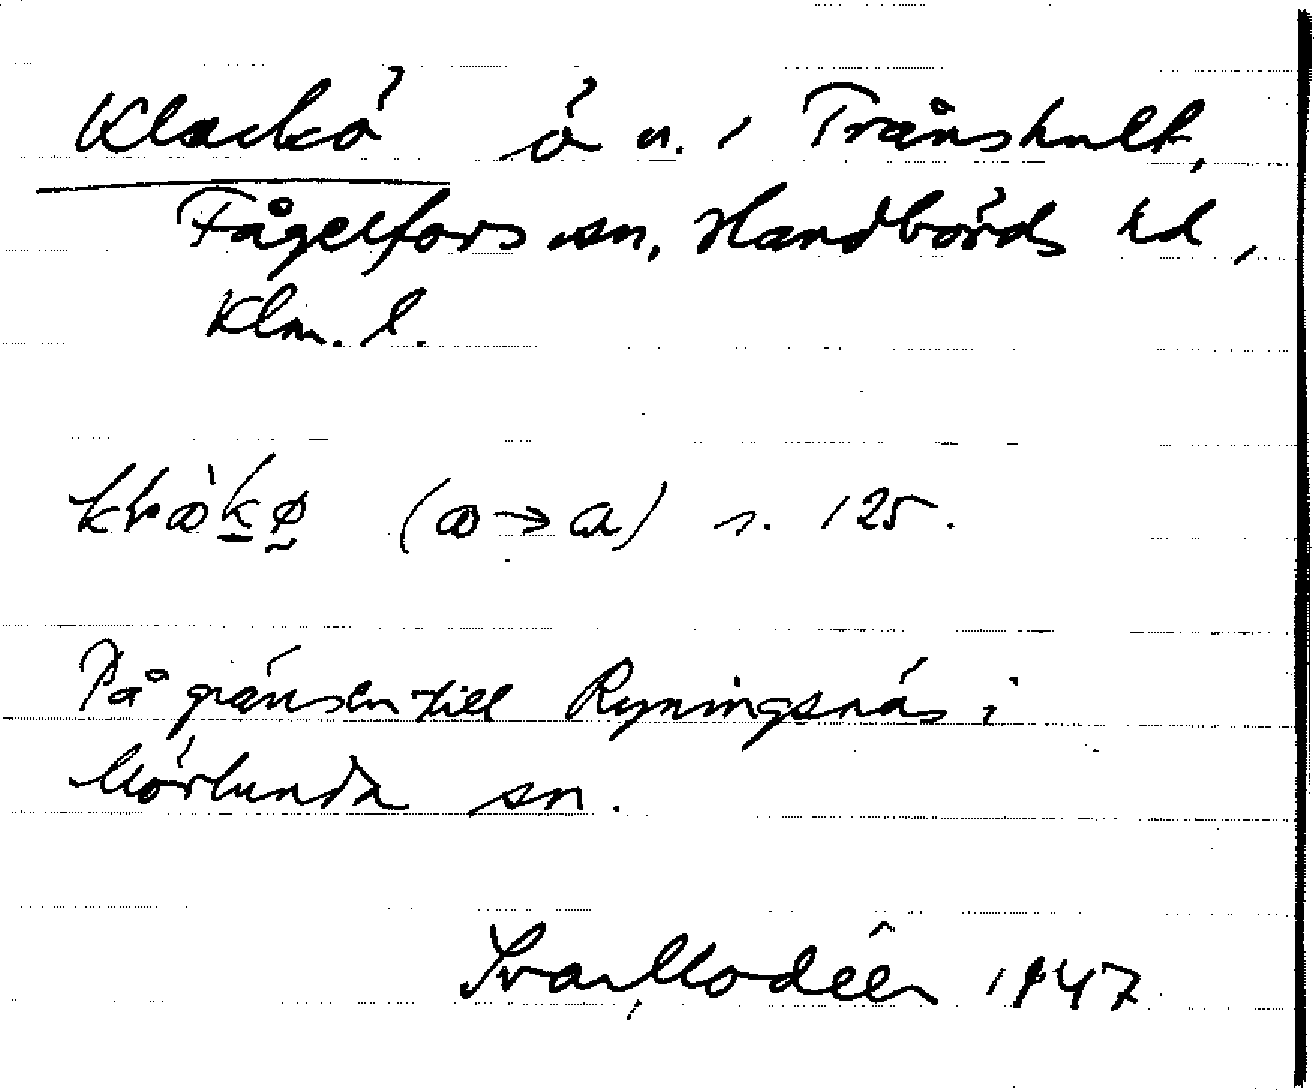 Klackö ö n. i Trånshult,
Fågelfors sn, Handbörds hd,
Klm. l.
(ꝏ→a) s. 125.
På gränsen till Ryningsnäs i
Mörlunda sn.
Ivar Modéer 1947